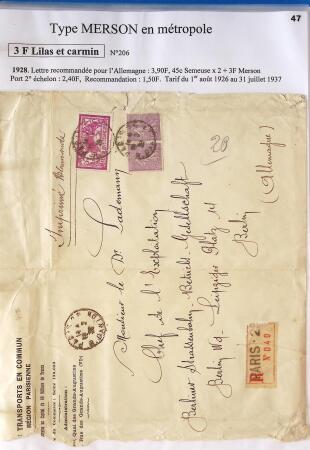 47
Type MERSON en métropole
3 F Lilas et carmin N°206
1928. Lettre recommandée pour l'Allemagne : 3,90F, 45c Semeuse x 2 + 3F Merson
Port 2° échelon : 2,40F, Recommandation : 1,50F. Tarif du 1er août 1926 au 31 juillet 1937
Imprimé
Monsieur le Dr Lademann
Chef de l'Exploitation
Berliner Strassenbahn-Betriebs-Gesellschaft
Berlin Leipziger Platz 14
Berlin
(Allemagne)
PARIS - 2
R N° 040
TRANSPORTS EN COMMUN
RÉGION PARISIENNE
Administration :
Quai des Grands-Augustins